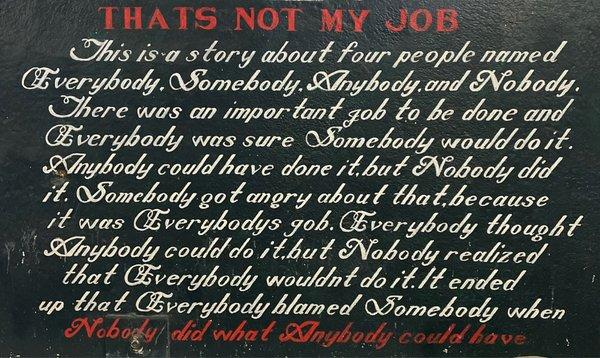 THATS NOT MY JOB
This is a story about four people named
Everybody, Somebody, Anybody, and Nobody.
There was an important gob to be done and
Everybody was sure Somebody would do it.
Anybody could have done it, but Nobody did
it. Somebody got angry about that, because
it was Everybodys gob. Everybody thought
Anybody could do it, but Nobody realized
that Everybody wouldnt do it. It ended
up that Everybody blamed Somebody when
Nobody did what Anybody could have